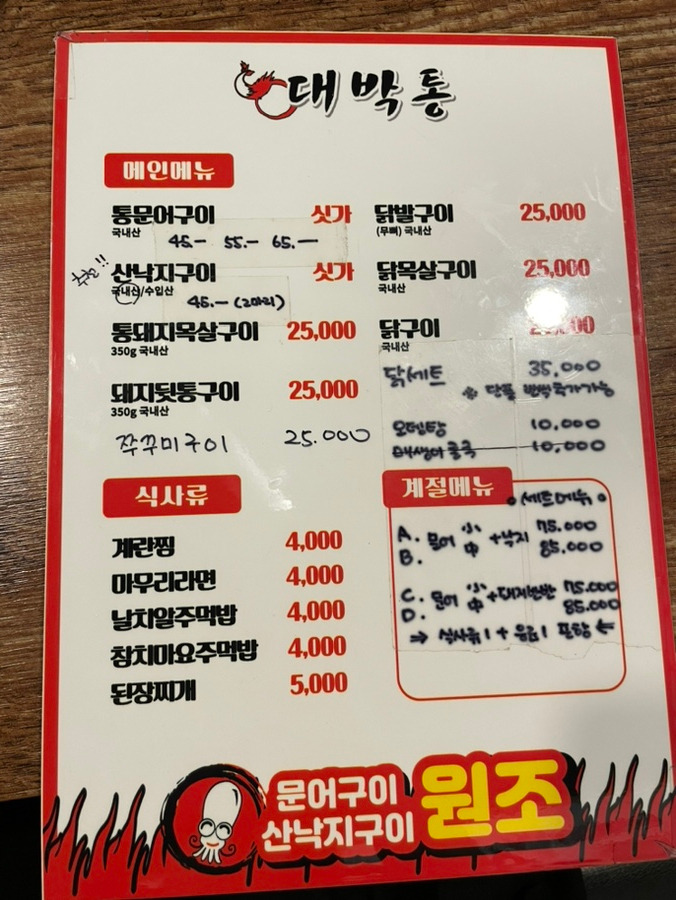 대박통
메인메뉴
통문어구이 싯가
국내산
45.- 55.- 65.-
추천!!
산낙지구이 싯가
국내산/수입산
45.- (2마리)
통돼지목살구이 25,000
350g 국내산
돼지뒷통구이 25,000
350g 국내산
쭈꾸미구이 25.000
닭발구이 25,000
(무뼈) 국내산
닭목살구이 25,000
국내산
닭구이
국내산
닭세트 35.000
※ 단품 반반추가가능
오뎅탕 10,000
10,000
식사류
계란찜 4,000
마우리라면 4,000
날치알주먹밥 4,000
참치마요주먹밥 4,000
된장찌개 5,000
계절메뉴
세트메뉴
A. 문어 小 +낙지 75.000
B. 中 85.000
C. 문어 小 +돼지반반 75.000
D. 中 85.000
⇒ 식사류1 + 음료1 포함 ⇐
문어구이
산낙지구이
원조